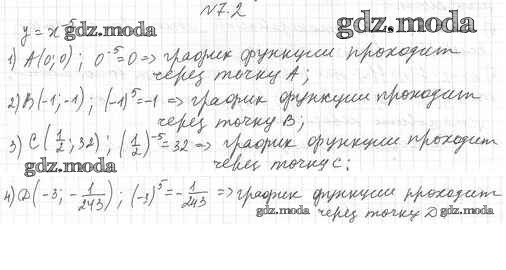 №7.2
gdz.moda
y = x⁻⁵ gdz.moda
1) A(0; 0); 0⁻⁵ = 0 => график функции проходит
через точку A;
2) B(-1; -1); (-1)⁵ = -1 => график функции проходит
через точку B;
3) C(1/2; 32); (1/2)⁻⁵ = 32 => график функции проходит
gdz.moda через точку C;
4) D(-3; -1/243); (-3)⁵ = -1/243 => график функции проходит
gdz.moda через точку D gdz.moda